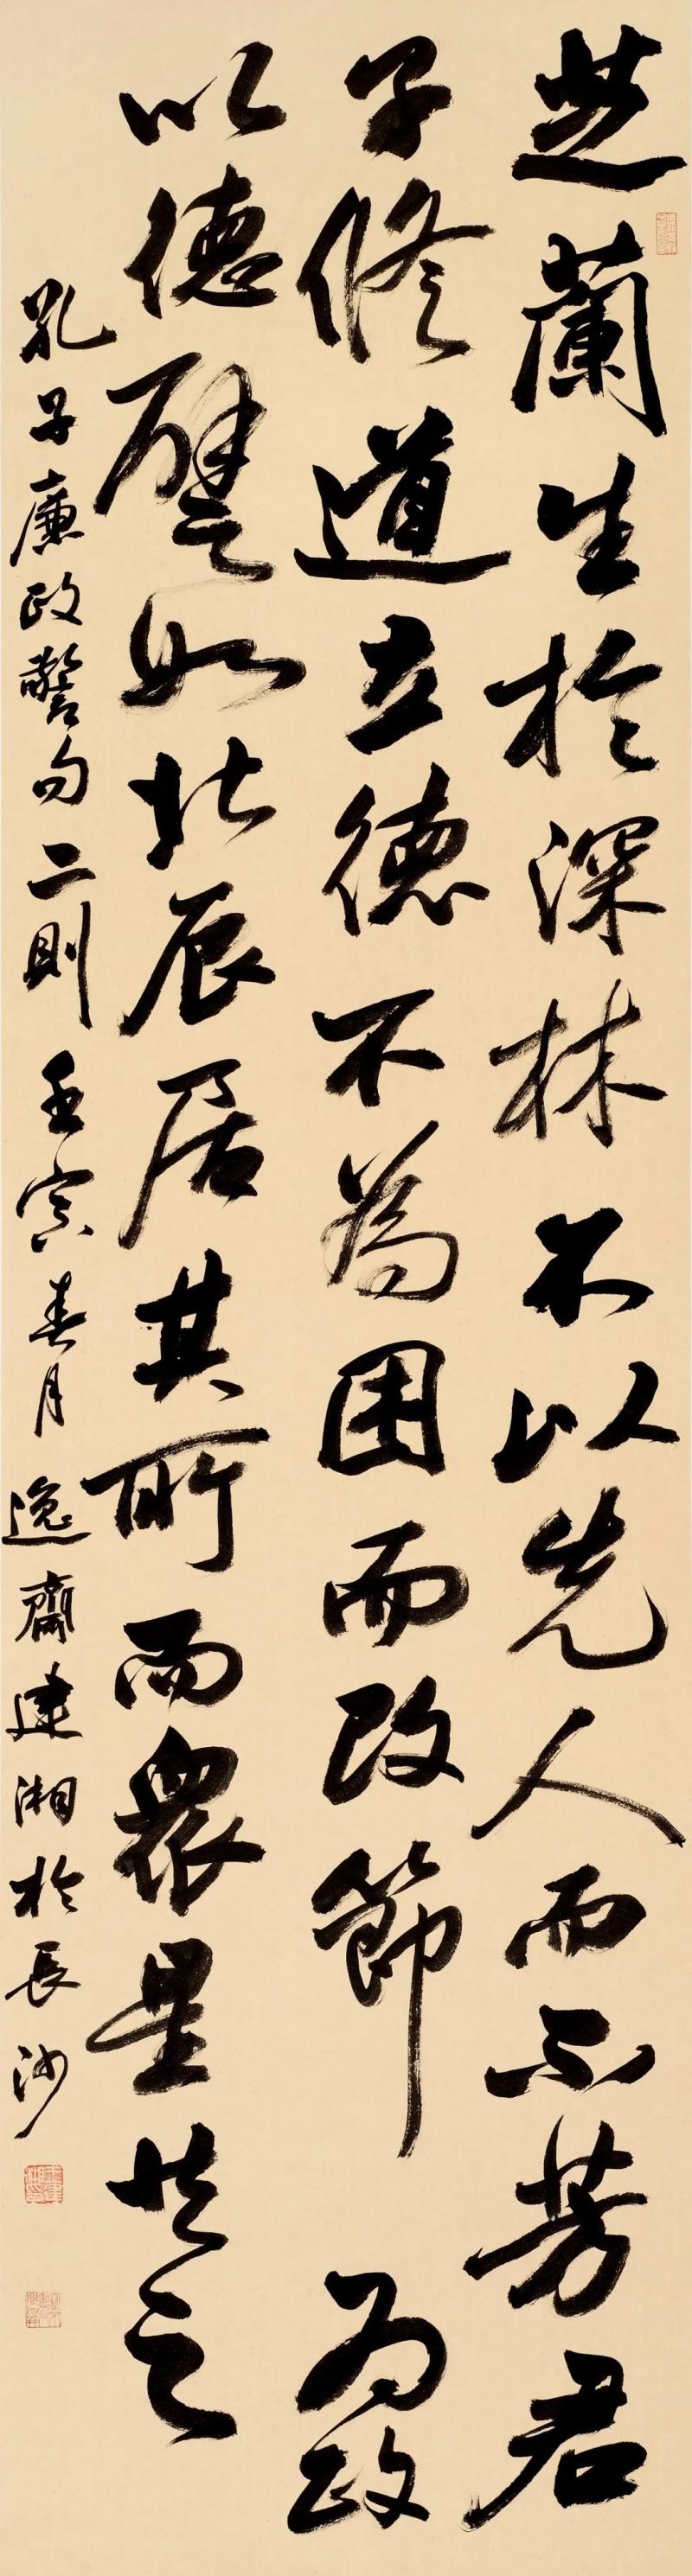 芝蘭生於深林不以先人而不芳君
子修道立德不為困而改節 為政
以德譬如北辰居其所而眾星共之
孔子廉政警句二則 壬寅春月 逸齋建湘於長沙